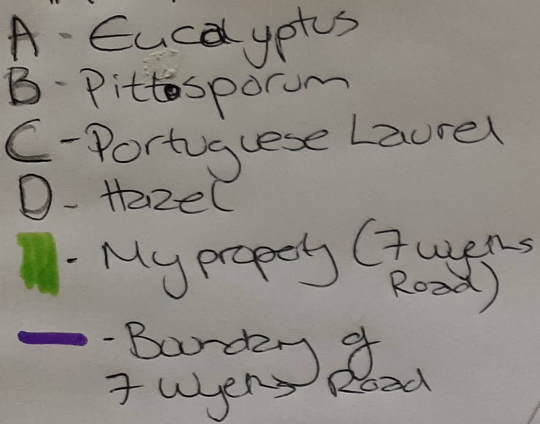 A - Eucalyptus
B - Pittosporum
C - Portuguese Laurel
D - Hazel
- My property (7 Wyerns
Road)
- Boundary of
7 Wyerns Road